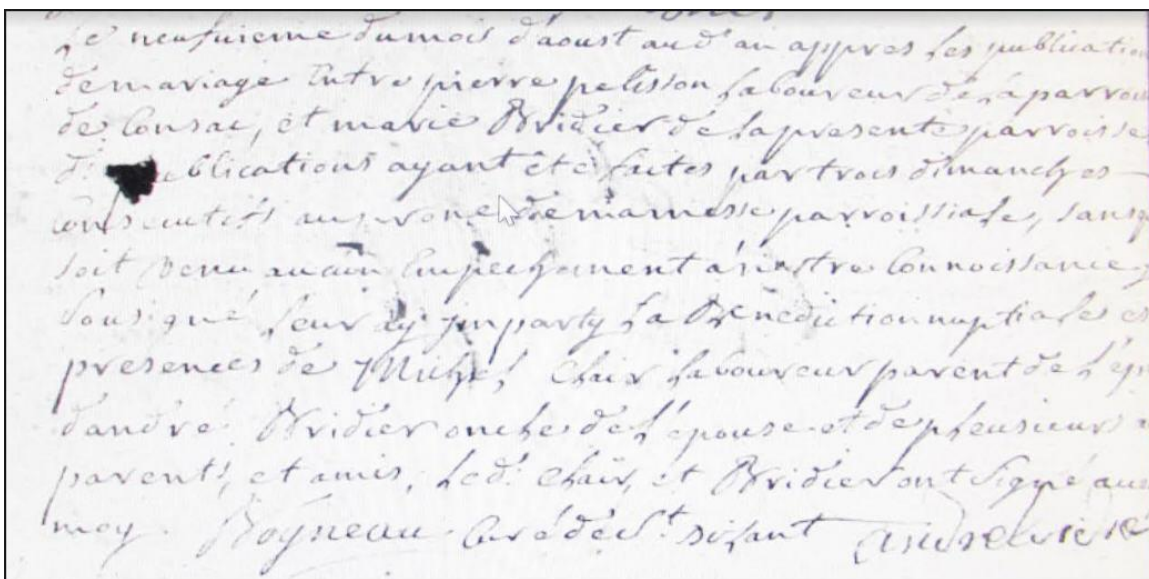 Le neufuieme dumois d'aoust aud' an appres les publication
demariage Entre pierre pelisson Laboureur de La parroi
de Consac, et marie Bridier de la presente parroisse
blications ayant été faites par trois dimanches
consecutifs au prone de ma messe parroissiale, sans q
soit venu aucun Empechement a nostre Connoissance,
Sousigné Leur ay imparty La Benediction nuptiale es
presences de Michel Chair Laboureur parent de L'ép
d'andré Bridier oncle de L'épouse et de pleusieurs a
parents, et amis, Led. Chair, et Bridier ont signé aue
moy. Rogneau Curé de St. sizant andre bridie